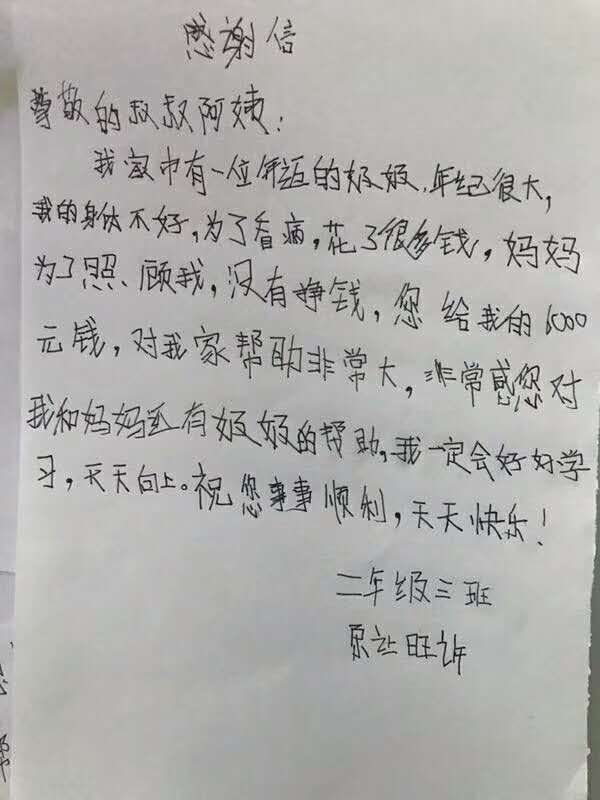 感谢信
尊敬的叔叔阿姨:
我家中有一位年迈的奶奶,年纪很大,
我的身体不好,为了看病,花了很多钱,妈妈
为了照顾我,没有挣钱,您给我的6000
元钱,对我家帮助非常大,非常感您对
我和妈妈还有奶奶的帮助,我一定会好好学
习,天天向上。祝您事事顺利,天天快乐!
二年级三班
旺